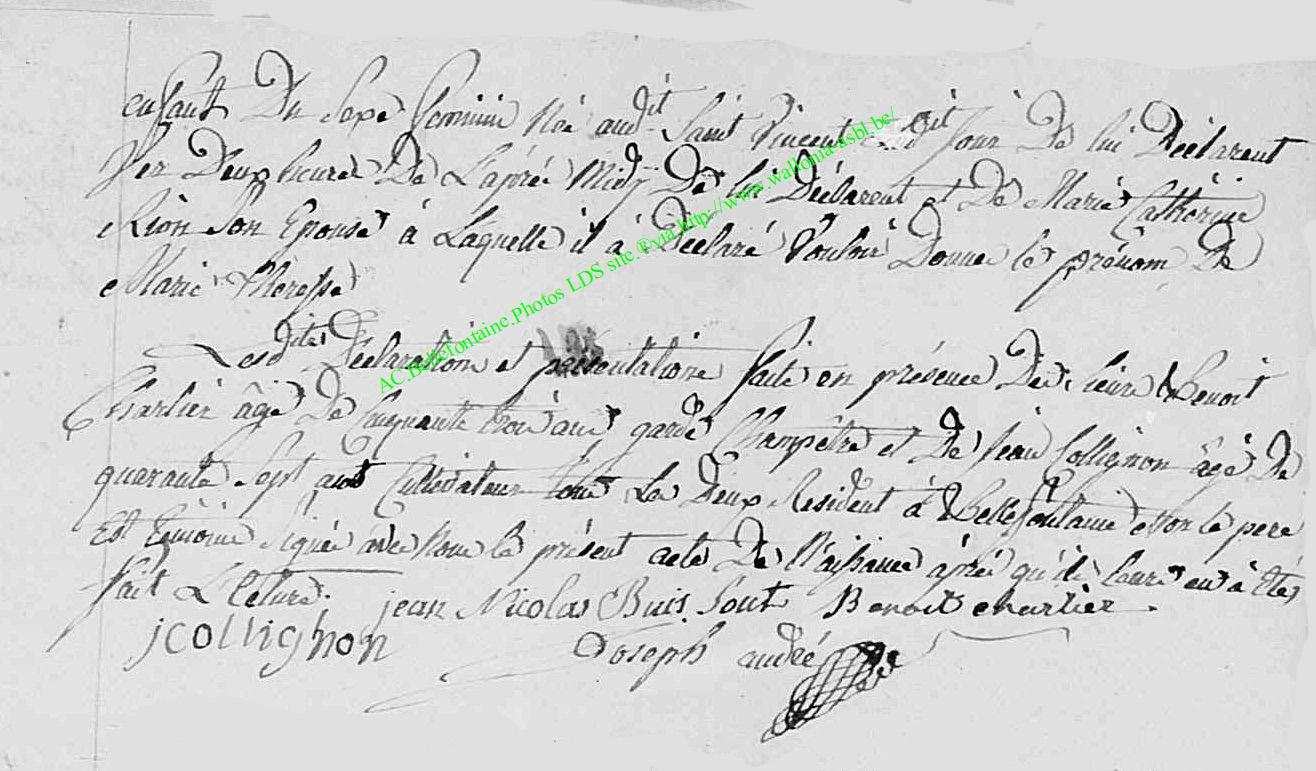 enfant Du Sexe feminin Née audit Saint Vincent dit jour De lui Déclarent
Deux heures De L'aprés Midy De lui Déclarent et De Marie Catherine
Rion Son Epouse à Laquelle il à Déclaré Vouloir Donner le prénom De
Marie Therese
Lesdites Déclaration et présentatione faite en présence De Benoit
Charlier âgé De Cinquante trois ans garde Champêtre et De Jean Collignon âgé De
quarante Sept ans Cultivateur tous Le Deux Resident à Bellefontaine et on le pere
Et témoins Signée avec Nous le présent acte De Naissance aprés qu'il leurs en à Etés
fait Lecture.
jean Nicolas Buis Sont Benoit charlier.
jcollighon
Joseph andré
AC.Bellefontaine.Photos LDS site.®via.http://www.wallonia-asbl.be/